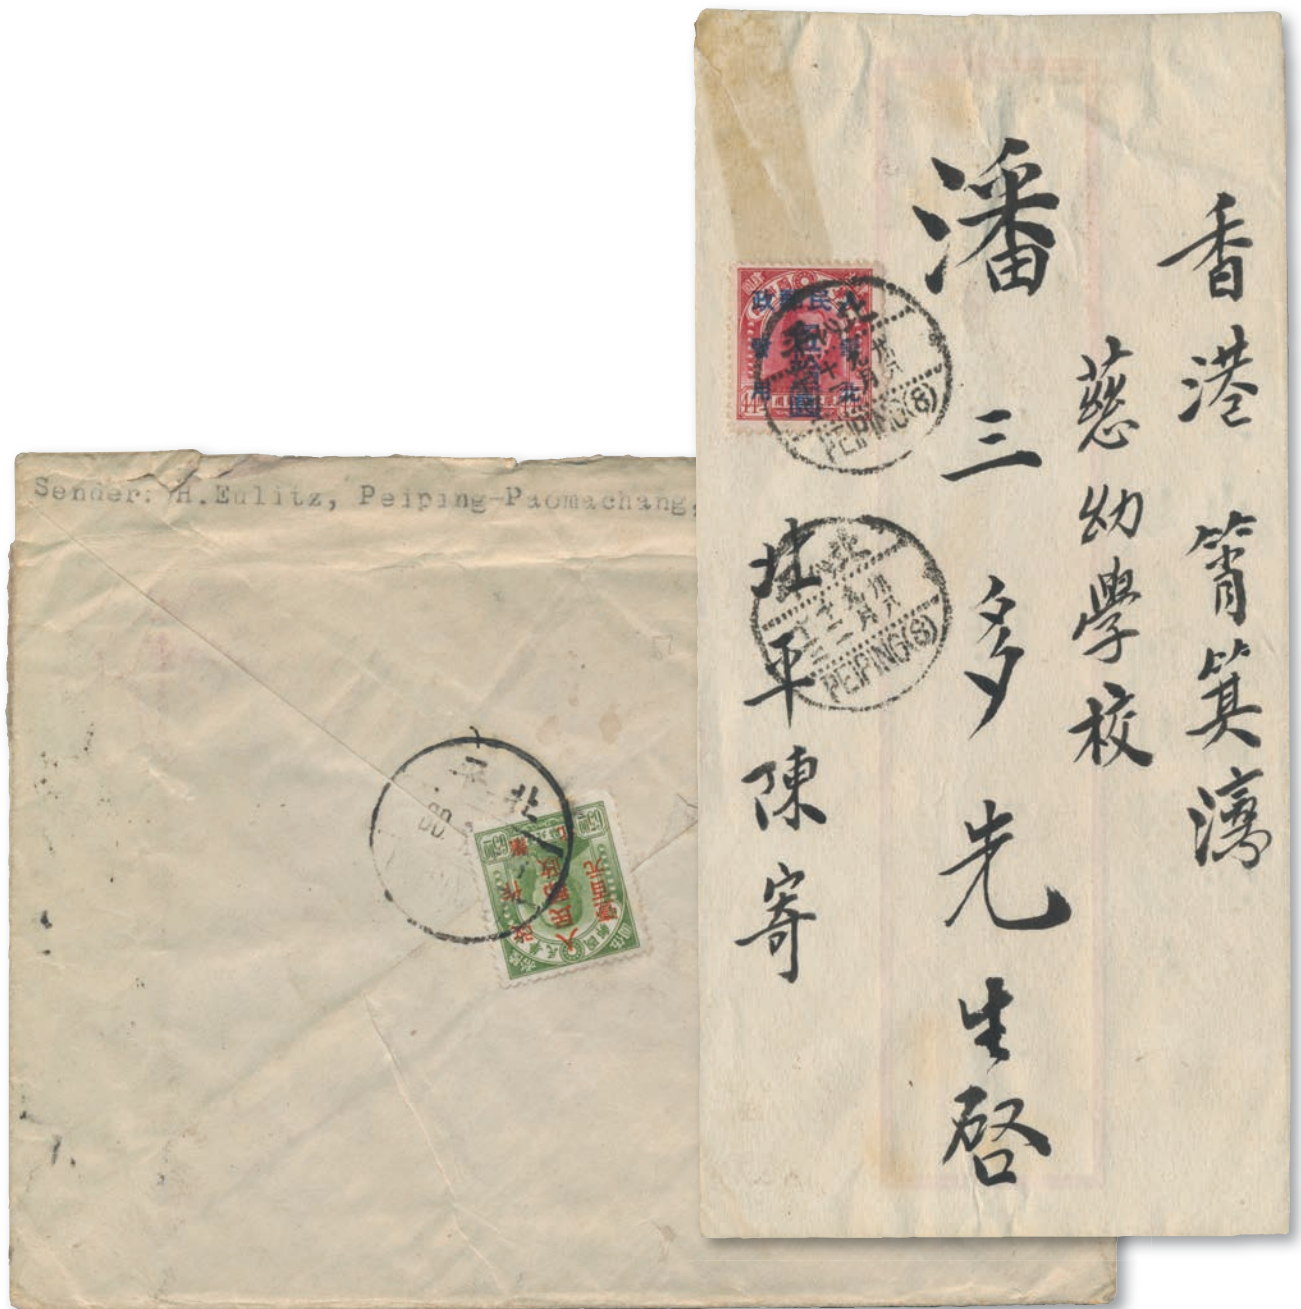 Sender: H.Eulitz, Peiping-Paomachang,
香港 筲箕灣
慈幼學校
潘三多先生啓
北平陳寄
人民郵政
華北
暫用
伍拾圓
PEIPING(8)
PEIPING(8)
北平
人民郵政
壹百元